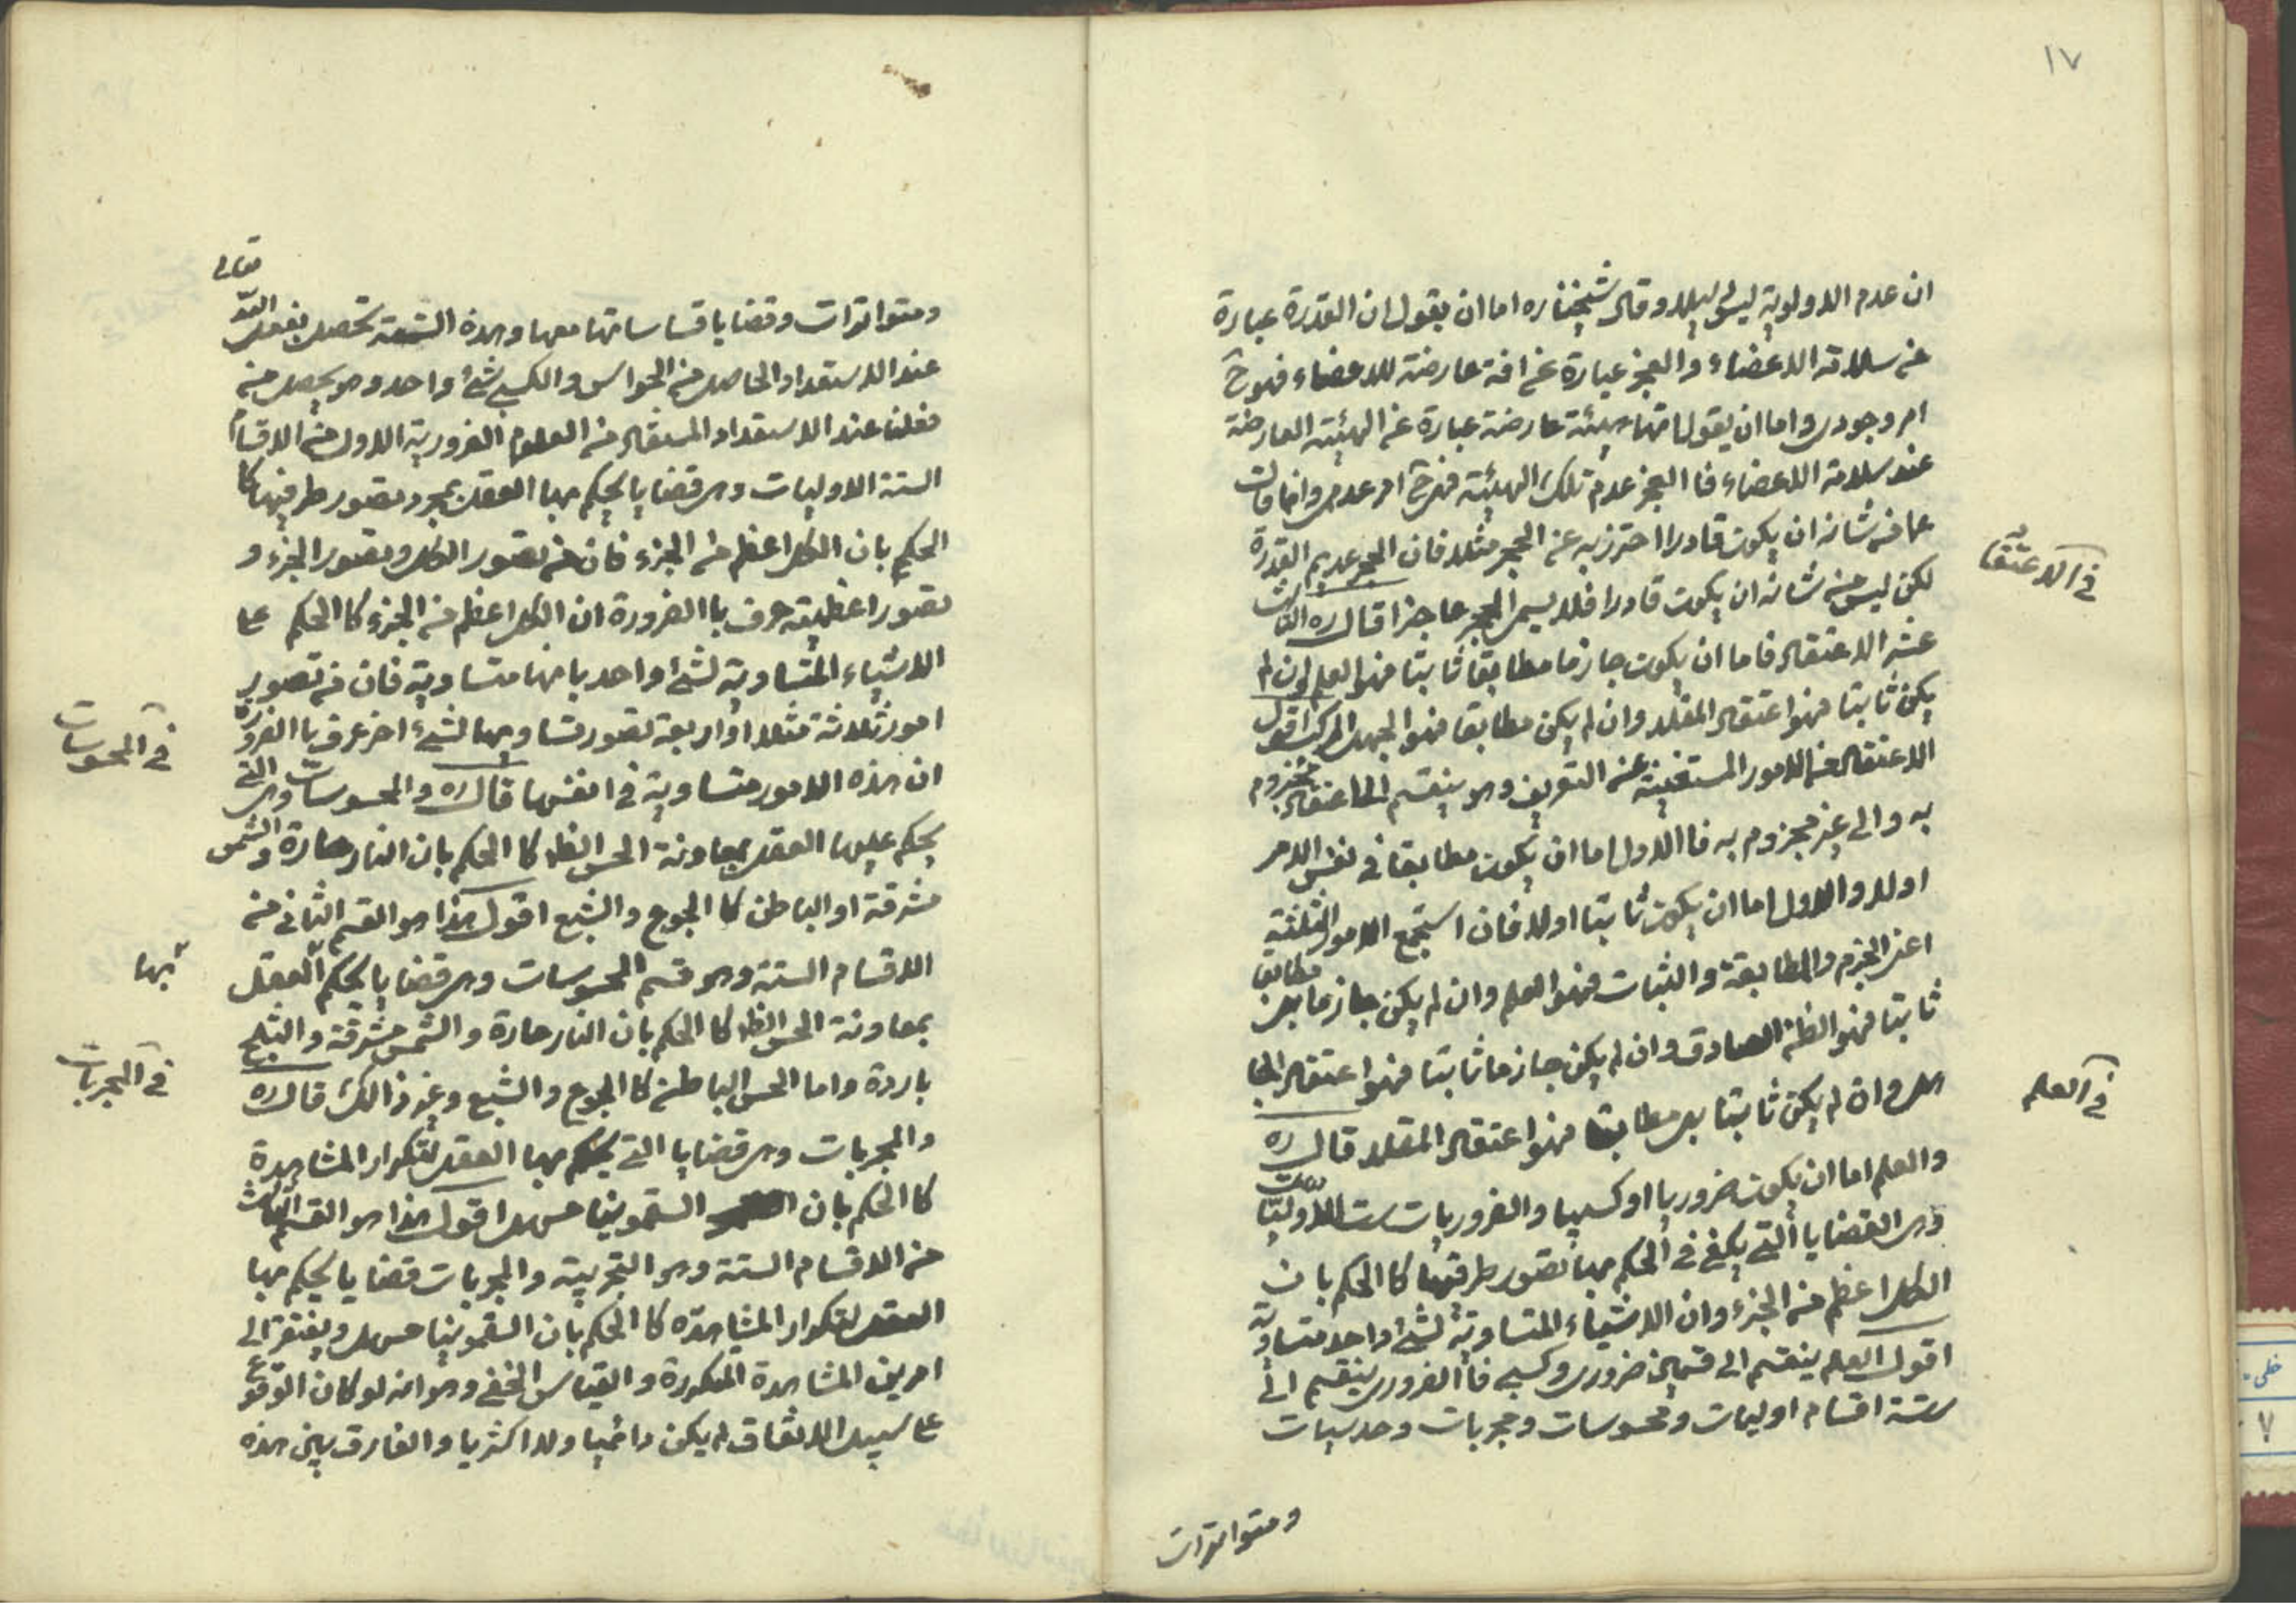 ١٧
ان عدم الاولوية ليس دليلا وقال شيخنا ره اما ان يقول ان القدرة عبارة
عن سلامة الاعضاء والعجز عبارة عن افة عارضة للاعضاء فهو ح
امر وجودى واما ان يقول انها هيئة عارضة عبارة عن الهيئة العارضة
عند سلامة الاعضاء فا العجز عدم تلك الهيئة فهى ح امر عدمى وانما قلت
عما من شانه ان يكون قادرا احترز به عن الحجر مثلا فان الحجر عديم القدرة
لكن ليس من شانه ان يكون قادرا فلا يسمى الحجر عاجزا قال ره الثالث
عشر الاعتقاد فاما ان يكون جازما مطابقا ثابتا فهوا لعلم وان لم
يكن ثابتا فهوا اعتقاد المقلد وان لم يكن مطابقا فهوا الجهل المركب اقول
الاعتقاد من الامور المستغنية عن التعريف وهو ينقسم الى اعتقاد مجزوم
به والى غير مجزوم به فا الاول اما ان يكون مطابقا فى نفس الامر
اولا والاول اما ان يكون ثابتا اولا فان استجمع الامور الثلثة
اعنى الجزم والمطابقة والثبات فهوا لعلم وان لم يكن جازما بل مطابقا
ثابتا فهوا الظن الصادق وان لم يكن جازما ثابتا فهوا اعتقاد الجا
هل وان لم يكن ثابتا بل مطابقا فهوا اعتقاد المقلد قال ره
والعلم اما ان يكون ضروريا او كسبيا والضروريات ست الاوليات
وهى القضايا التى يكفى فى الحكم بها تصور طرفيها كا الحكم بان
الكل اعظم من الجزء وان الاشياء المتساوية لشئ واحد متساوية
اقول العلم ينقسم الى قسمين ضرورى وكسبى فا الضرورى ينقسم الى
ستة اقسام اوليات ومحسوسات ومجربات وحدسيات
ومتواترات
فى الاعتقاد
فى العلم
ومتواترات وقضايا قياساتها معها وهذه الستة تحصل بفعل الله تعالى
عند الاستعداد الحاصل من الحواس والكسبى شئ واحد وهو يحصل من
فعلنا عند الاستعداد المستفاد من العلوم الضرورية الاول من الاقسام
الستة الاوليات وهى قضايا يحكم بها العقل بمجرد تصور طرفيها كا
الحكم بان الكل اعظم من الجزء فان من تصور الكل وتصور الجزء و
تصور اعظمية عرف با الضرورة ان الكل اعظم من الجزء كا الحكم على
الاشياء المتساوية لشئ واحد بانها متساوية فان من تصور
امور ثلاثة مثلا او اربعة تصور تساويها لشئ اخر عرف با الضرورة
ان هذه الامور متساوية فى انفسها قال ره والمحسوسات وهى التى
يحكم عليها العقل بمعاونة الحس الظ كا الحكم بان النار حارة والشمس
مشرقة او الباطن كا الجوع والشبع اقول هذا هو القسم الثانى من
الاقسام الستة وهو قسم المحسوسات وهى قضايا يحكم العقل
بها
بمعاونة الحس الظ كا الحكم بان النار حارة والشمس مشرقة والثلج
باردة واما الحس الباطن كا الجوع والشبع وغير ذالك قال ره
والمجربات وهى قضايا التى يحكم بها العقل لتكرار المشاهدة
كا الحكم بان السقمونيا مسهل اقول هذا هو القسم الثالث
من الاقسام الستة وهو التجربية والمجربات قضايا يحكم بها
العقل لتكرار المشاهده كا الحكم بان السقمونيا مسهل ويفتقر الى
امرين المشاهدة المتكررة والقياس الخفى وهو انه لو كان الوقوع
على سبيل الاتفاق لم يكن دائميا ولا اكثريا والفارق بين هذه
فى المحسوسات
فى المجربات